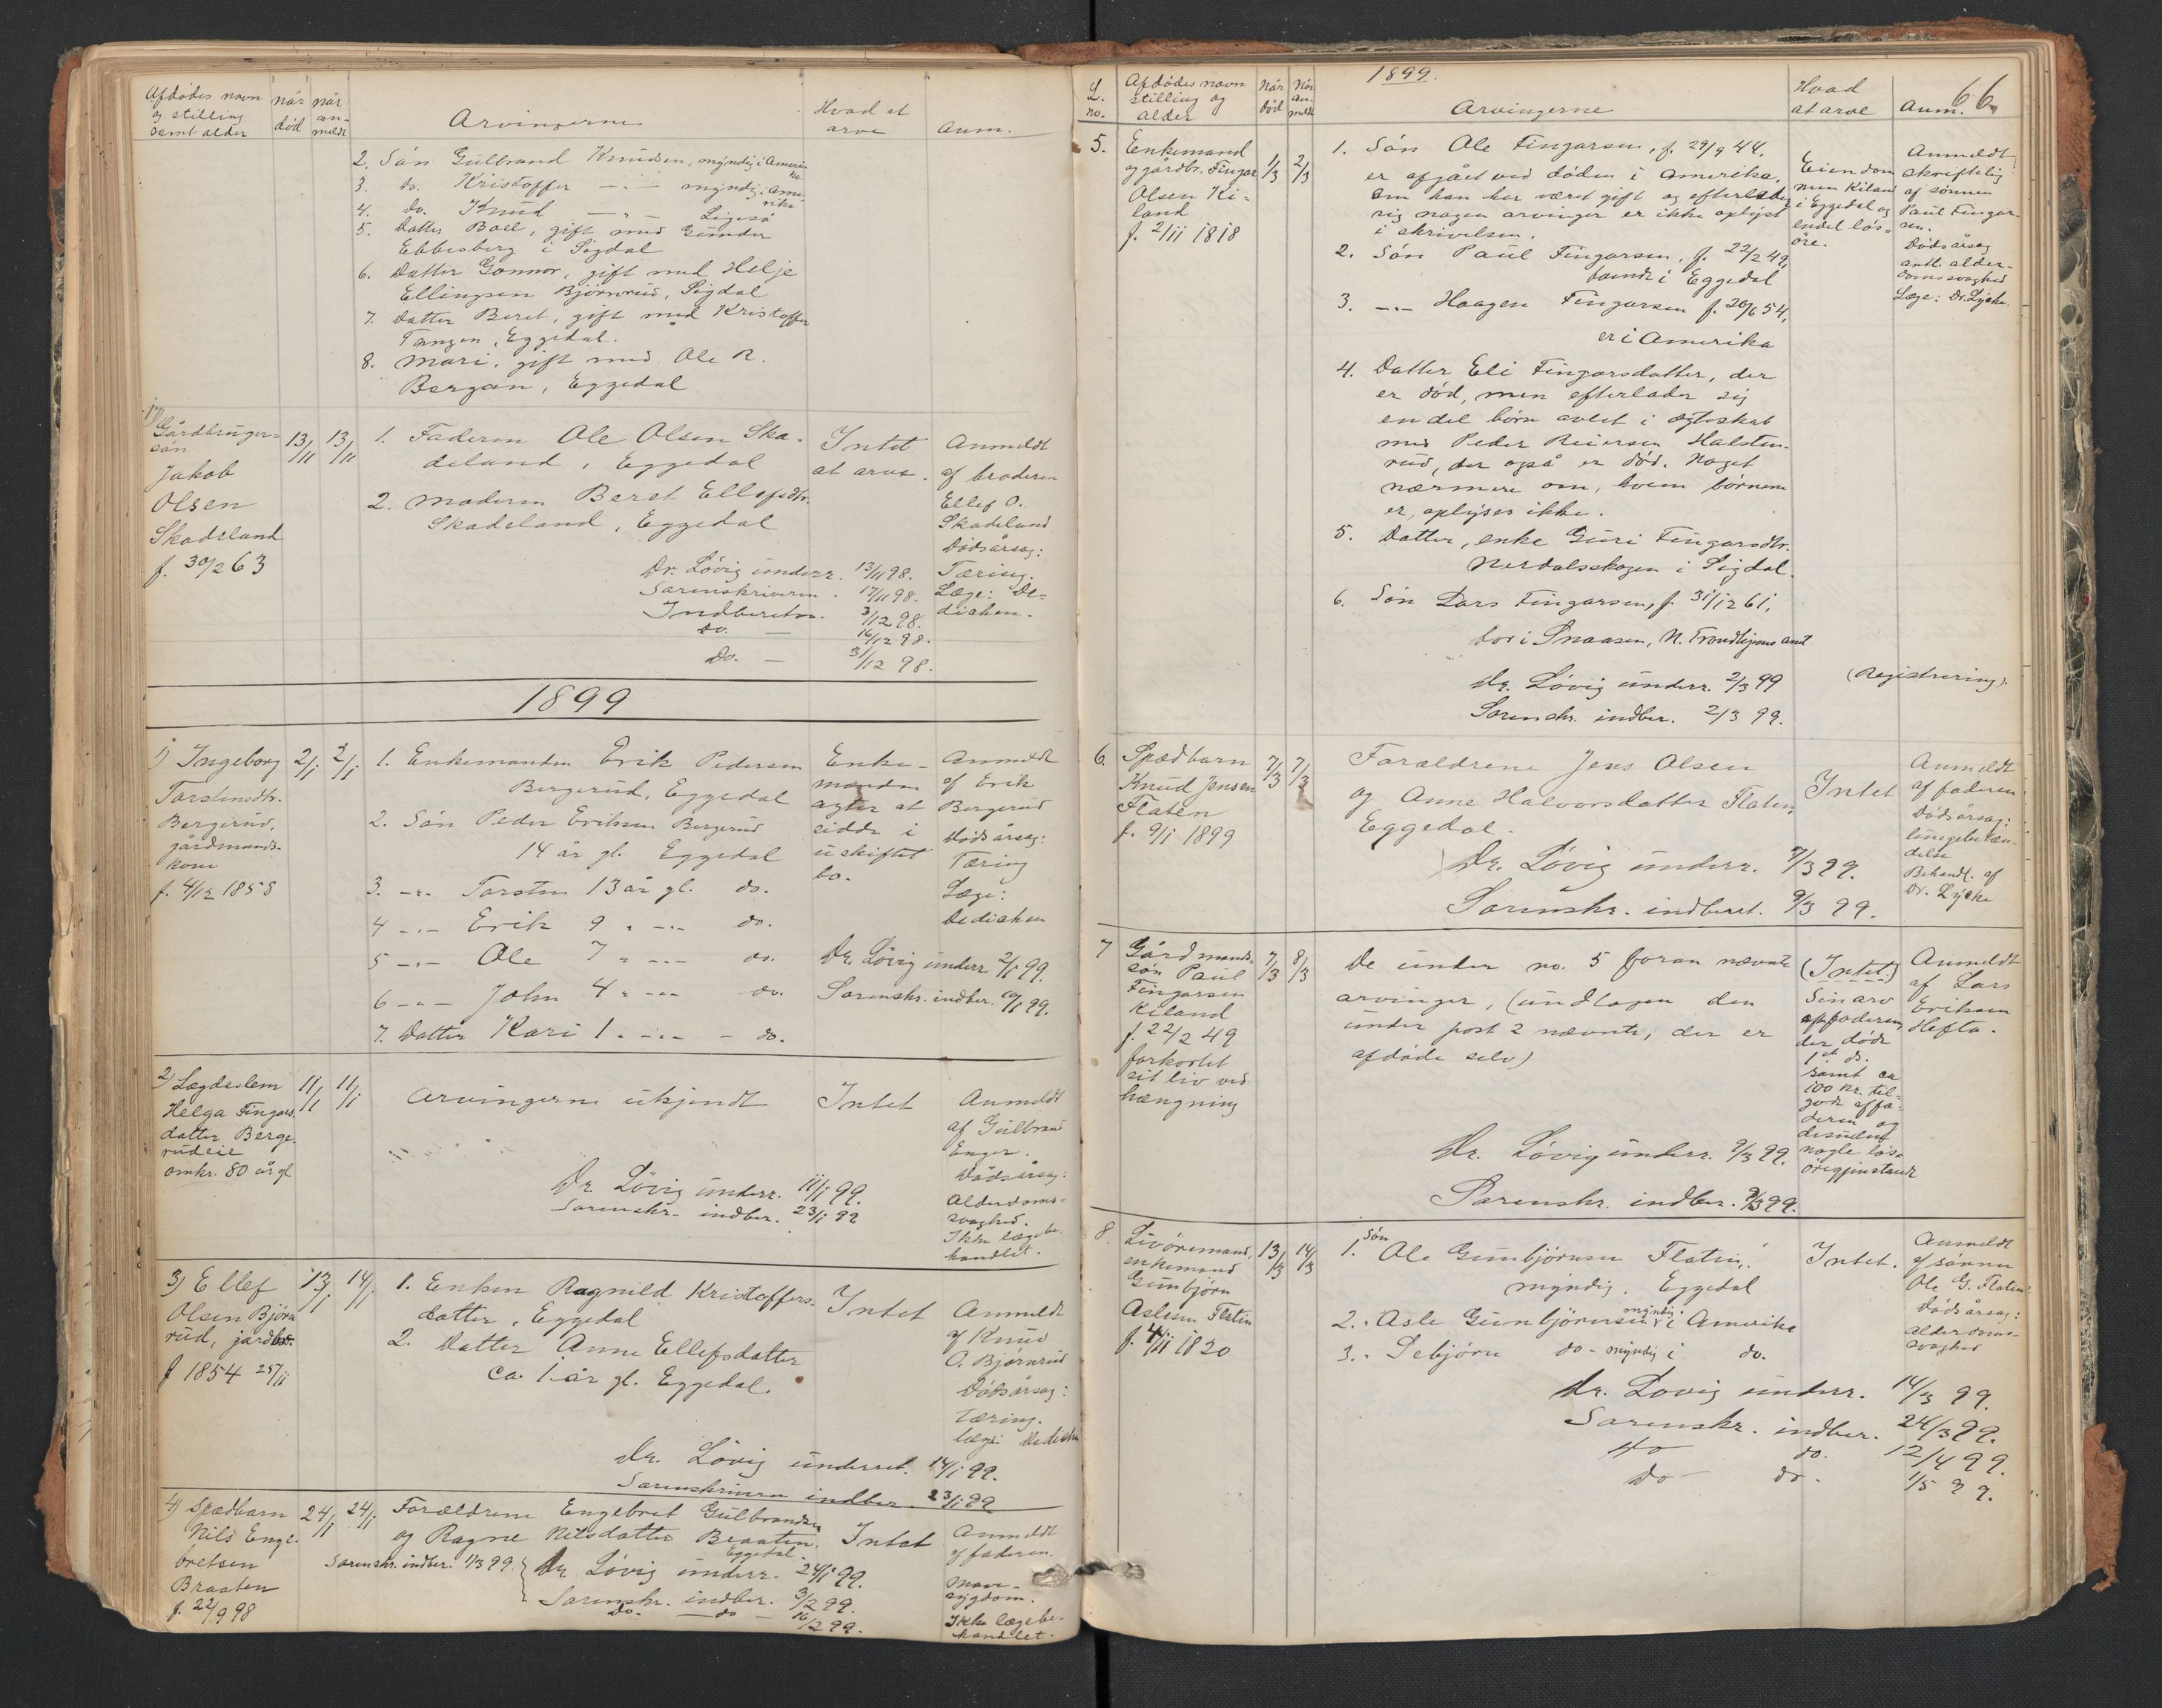 Afdödes navn
og stilling
samt alder
når
död
når
an-
meldt
Arvingerne
Hvad at
arve
Anm.
2. Sön Gulbrand Knudsen, myndig i Amerika
3. do. Kristoffer —"— myndig i Amerika
4. do. Knud —"— Ligeså
5. Datter Boel, gift med Gunder
Ebbesberg i Sigdal
6. Datter Gonnor, gift med Helje
Ellingsen Björnrud, Sigdal
7. Datter Beret, gift med Kristoffer
Tangen, Eggedal.
8. Mari, gift med Ole R.
Bergan, Eggedal
17)
Gårdbruger-
sön
Jakob
Olsen
Skadeland
f. 30/2 63
13/11
13/11
1. Faderen Ole Olsen Ska-
deland, Eggedal
2. Moderen Beret Ellefsdtr.
Skadeland, Eggedal
Intet
at arve.
Anmeldt
af broderen
Ellef O.
Skadeland
Dödsårsag:
Tæring.
Læge: De-
dichen.
Dr. Lövig underr. 13/11 98.
Sorenskriveren. 17/11 98.
Indberetn. 3/12 98.
do. — 16/12 98.
Do. — 31/12 98.
1899
1) Ingeborg
Torstensdtr.
Bergerud,
gårdmands-
kone
f. 4/12 1858
2/1
2/1
1. Enkemanden Erik Pedersen
Bergerud, Eggedal
2. Sön Peder Eriksen Bergerud
14 år gl. Eggedal
3. —"— Torsten 13 år gl. do.
4 —"— Erik 9 " —"— do.
5 —"— Ole 7 " —"— do.
6 —"— John 4 " —"— do.
7. Datter Kari 1 " —"— do.
Enke-
manden
agter at
sidde i
uskiftet
bo.
Anmeldt
af Erik
Bergerud
Dödsårsag:
Tæring
Læge:
Dedichen
Dr. Lövig underr. 2/1 99.
Sorenskr. indber. 10/1 99.
2) Lægdeslem
Helga Fingars-
datter Berge-
rudeie
omkr. 80 år gl
11/1
11/1
Arvingerne ukjendt
Intet
Anmeldt
af Gulbrand
Enger.
Dödsårsag:
Alderdoms-
svaghed.
Ikke lægebe-
handlet.
Dr. Lövig underr. 11/1 99.
Sorenskr. indber. 23/1 99
3) Ellef
Olsen Björn
rud, jardbr.
f 1854 25/11
13/1
14/1
1. Enken Ragnild Kristoffers-
datter, Eggedal
2. Datter Anne Ellefsdatter
ca. 1 år gl. Eggedal.
Intet
Anmeldt
af Knud
O. Björnrud
Dödsårsag:
Tæring.
Læge: Dedichen
Dr. Lövig underret. 14/1 99.
Sorenskriveren indber. 23/1 99
4) Spædbarn
Nils Enge-
bretsen
Braaten
f. 22/9 98
24/1
24/1
Forældrene Engebret Gulbrandsen
og Ragne Nilsdatter Braaten,
Eggedal.
Intet
Anmeldt
af faderen.
Mave-
sygdom.
Ikke lægebe-
handlet.
Sorenskr. indber. 1/3 99.
Dr. Lövig underr. 24/1 99.
Sorenskr. indber. 3/2 99.
Do. — do — 16/2 99.
1899.
66
L.
no.
Afdödes navn
stilling og
alder
Når
död
Når
an-
meldt
Arvingerne
Hvad
at arve
Anm.
5. Enkemand
og gårdbr. Fingar
Olsen Ki-
land
f. 2/11 1818
1/3
2/3
1. Sön Ole Fingarsen, f. 29/9 44,
er afgået ved döden i Amerika,
om han har været gift og efterlader
sig nogen arvinger er ikke oplyst
i skrivelsen.
2. Sön Paul Fingarsen, f. 22/2 49,
boende i Eggedal
3. —"— Haagen Fingarsen f. 20/6 54,
er i Amerika
4. Datter Eli Fingarsdatter, der
er död, men efterlader sig
endel börn avlet i ægteskab
med Peder Reiersen Halsten-
rud, der også er död. Noget
nærmere om, hvem börnene
er, oplyses ikke.
5. Datter, enke Guri Fingarsdtr.
Nerdalsskogen i Sigdal.
6. Sön Lars Fingarsen, f. 31/12 61,
bor i Snaasen, N. Trondhjems amt
Eiendom
men Kiland
i Eggedal og
endel lös-
öre.
Anmeldt
skriftelig
af sönnen
Paul Fingar-
sen.
Dödsårsag
antl. alder-
domssvaghed
Læge: Dr. Lyche.
Dr. Lövig underr. 2/3 99
Sorenskr. indber. 2/3 99.
(Registrering).
6. Spædbarn
Knud Jensen
Flaten
f. 9/1 1899
7/3
7/3
Forældrene Jens Olsen
og Anne Halvorsdatter Flaten,
Eggedal.
Intet
Anmeldt
af faderen
Dödsårsag:
lungebetæn-
delse
Behandl. af
Dr. Lyche
Dr. Lövig underr. 7/3 99.
Sorenskr. indberet. 9/3 99.
7 Gårdmands-
sön Paul
Fingarsen
Kiland
f. 22/2 49
forkortet
sit liv ved
hængning
7/3
8/3
De under no. 5 foran nævnte
arvinger, (undtagen den
under post 2 nævnte, der er
afdöde selv)
(Intet.)
Sin arv
efter faderen,
der döde
1ste ds.
samt ca
100 kr. til-
gode af fa-
deren og
desuden
nogle lös-
öregjenstande
Anmeldt
af Lars
Eriksen
Hefta.
Dr. Lövig underr. 9/3 99.
Sorenskr. indber. 9/3 99.
8. Livöremand,
enkemand
Gunbjörn
Aslesen Flaten
f. 4/11 1820
13/3
14/3
1. Sön Ole Gunbjörnsen Flaten,
myndig, Eggedal
2. " Asle Gunbjörnsen myndig i Amerika
3. " Sebjörn do - myndig i do.
Intet.
Anmeldt
af sönnen
Ole G. Flaten
Dödsårsag:
alderdoms-
svaghed
Dr. Lövig underr. 14/3 99.
Sorenskr. indber. 24/3 99.
do do. 12/4 99.
Do - do - 1/5 99.